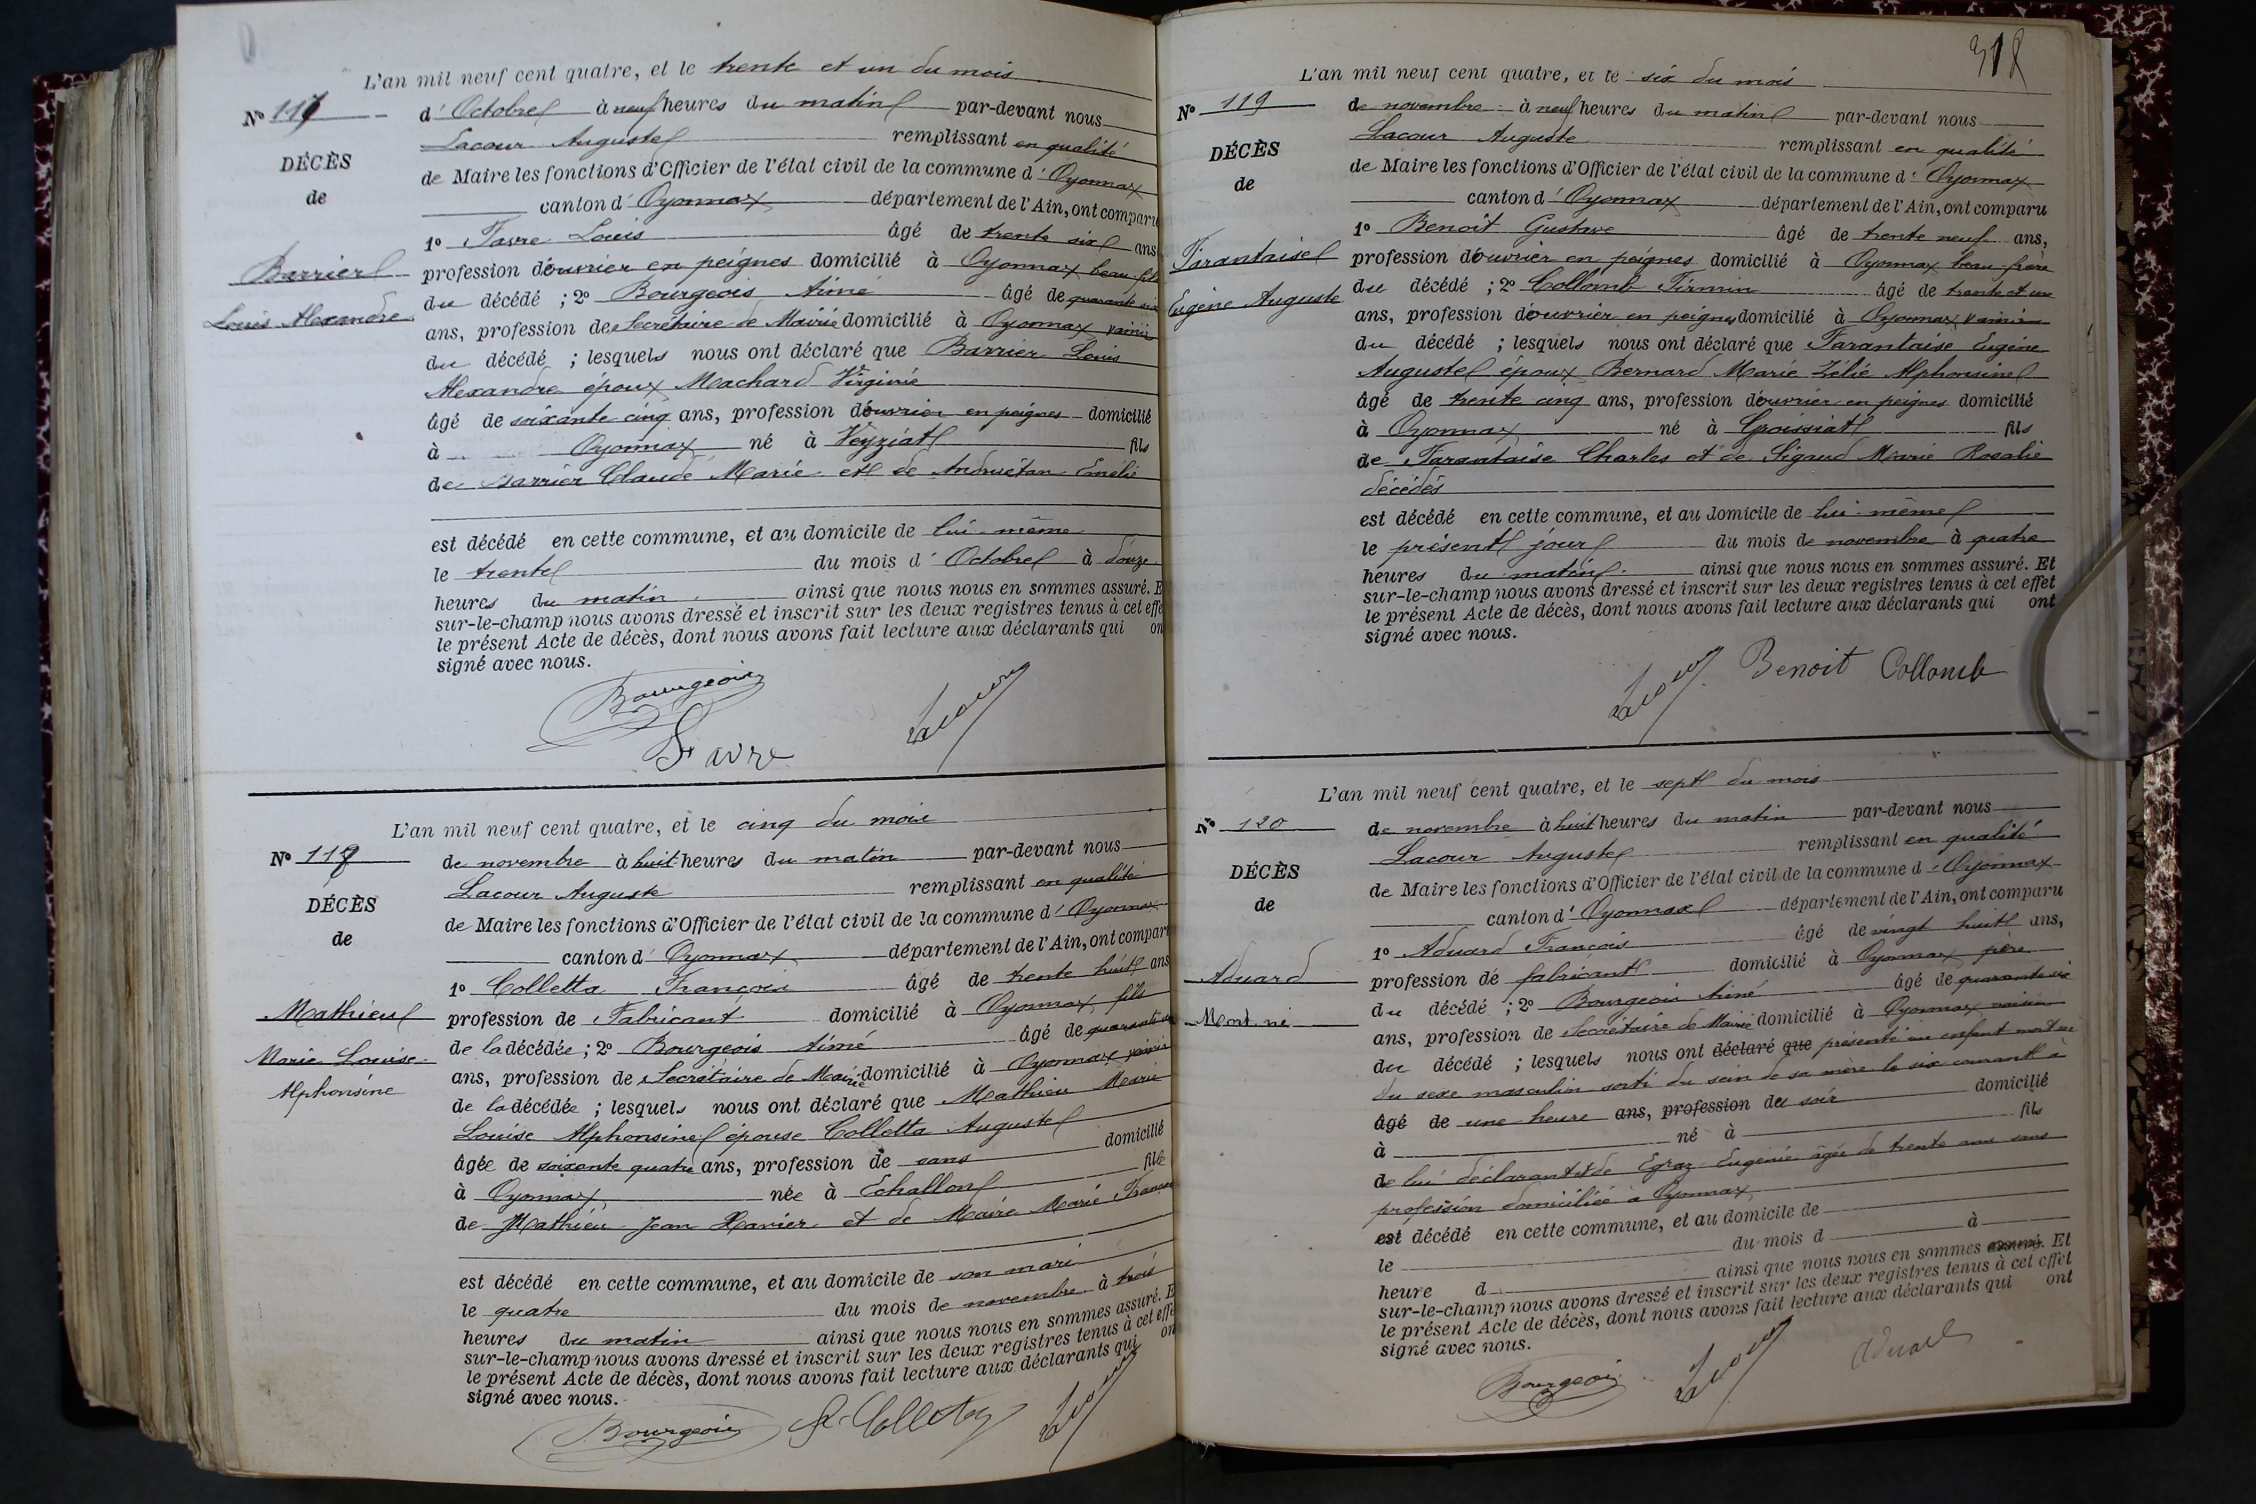 L'an mil neuf cent quatre, et le trente et un du mois
No 117
d'Octobre à neuf heures du matin par-devant nous
Lacour Auguste remplissant en qualité
DÉCÈS
de Maire les fonctions d'Officier de l'état civil de la commune d'Oyonnax
de
canton d'Oyonnax département de l'Ain, ont comparu
1o Favre Louis âgé de trente six ans
Barrier
profession d'ouvrier en peignes domicilié à Oyonnax beau-fils
Louis Alexandre
du décédé ; 2o Bourgeois Aimé âgé de quarante six
ans, profession de Secrétaire de Mairie domicilié à Oyonnax voisin
du décédé ; lesquels nous ont déclaré que Barrier Louis
Alexandre époux Machard Virginie
âgé de soixante cinq ans, profession d'ouvrier en peignes domicilié
à Oyonnax né à Veyziat fils
de Barrier Claude Marie et de Andruétan Emelie
est décédé en cette commune, et au domicile de lui-même
le trente du mois d'Octobre à douze
heures du matin ainsi que nous nous en sommes assuré. E
sur-le-champ nous avons dressé et inscrit sur les deux registres tenus à cet effe
le présent Acte de décès, dont nous avons fait lecture aux déclarants qui on
signé avec nous.
Bourgeois
Lacour
Favre
L'an mil neuf cent quatre, et le cinq du mois
No 118
de novembre à huit heures du matin par-devant nous
Lacour Auguste remplissant en qualité
DÉCÈS
de Maire les fonctions d'Officier de l'état civil de la commune d'Oyonnax
de
canton d'Oyonnax département de l'Ain, ont compar
1o Colletta François âgé de trente huit ans
Mathieu
profession de Fabricant domicilié à Oyonnax fils
Marie Louise
Alphonsine
de la décédée ; 2o Bourgeois Aimé âgé de quarante six
ans, profession de Secrétaire de Mairie domicilié à Oyonnax voisin
de la décédée ; lesquels nous ont déclaré que Mathieu Marie
Louise Alphonsine épouse Colletta Auguste
âgée de soixante quatre ans, profession de sans domicilié
à Oyonnax née à Echallon fille
de Mathieu Jean Xavier et de Maire Marie Franc
est décédé en cette commune, et au domicile de son mari
le quatre du mois de novembre à trois
heures du matin ainsi que nous nous en sommes assuré. E
sur-le-champ nous avons dressé et inscrit sur les deux registres tenus à cet effe
le présent Acte de décès, dont nous avons fait lecture aux déclarants qui on
signé avec nous.
Bourgeois F. Colletta Lacour
318
L'an mil neuf cent quatre, et le six du mois
No 119
de novembre à neuf heures du matin par-devant nous
Lacour Auguste remplissant en qualité
DÉCÈS
de Maire les fonctions d'Officier de l'état civil de la commune d'Oyonnax
de
canton d'Oyonnax département de l'Ain, ont comparu
1o Benoît Gustave âgé de trente neuf ans,
Tarantaise
profession d'ouvrier en peignes domicilié à Oyonnax beau frère
Eugène Auguste
du décédé ; 2o Collomb Firmin âgé de trente et un
ans, profession d'ouvrier en peignes domicilié à Oyonnax, voisin
du décédé ; lesquels nous ont déclaré que Tarantaise Eugène
Auguste époux Bernard Marie Zélie Alphonsine
âgé de trente cinq ans, profession d'ouvrier en peignes domicilié
à Oyonnax né à Groissiat fils
de Tarantaise Charles et de Sigaud Marie Rosalie
décédés
est décédé en cette commune, et au domicile de lui-même
le présent jour du mois de novembre à quatre
heures du matin ainsi que nous nous en sommes assuré. Et
sur-le-champ nous avons dressé et inscrit sur les deux registres tenus à cet effet
le présent Acte de décès, dont nous avons fait lecture aux déclarants qui ont
signé avec nous.
Lacour Benoit Collomb
L'an mil neuf cent quatre, et le sept du mois
No 120
de novembre à huit heures du matin par-devant nous
Lacour Auguste remplissant en qualité
DÉCÈS
de Maire les fonctions d'Officier de l'état civil de la commune d'Oyonnax
de
canton d'Oyonnax département de l'Ain, ont comparu
1o Aduard François âgé de vingt huit ans,
Aduard
profession de fabricant domicilié à Oyonnax père
Mort-né
du décédé ; 2o Bourgeois Aimé âgé de quarante six
ans, profession de Secrétaire de Mairie domicilié à Oyonnax voisin
du décédé ; lesquels nous ont déclaré que présenté un enfant mort né
du sexe masculin sorti du sein de sa mère le six courant à
âgé de une heure ans, profession de du soir domicilié
à né à fils
de lui déclarant et de Egraz Eugénie âgée de trente ans sans
profession domiciliée à Oyonnax
est décédé en cette commune, et au domicile de
le du mois d à
heure d ainsi que nous nous en sommes assuré. Et
sur-le-champ nous avons dressé et inscrit sur les deux registres tenus à cet effet
le présent Acte de décès, dont nous avons fait lecture aux déclarants qui ont
signé avec nous.
Bourgeois Lacour Aduard